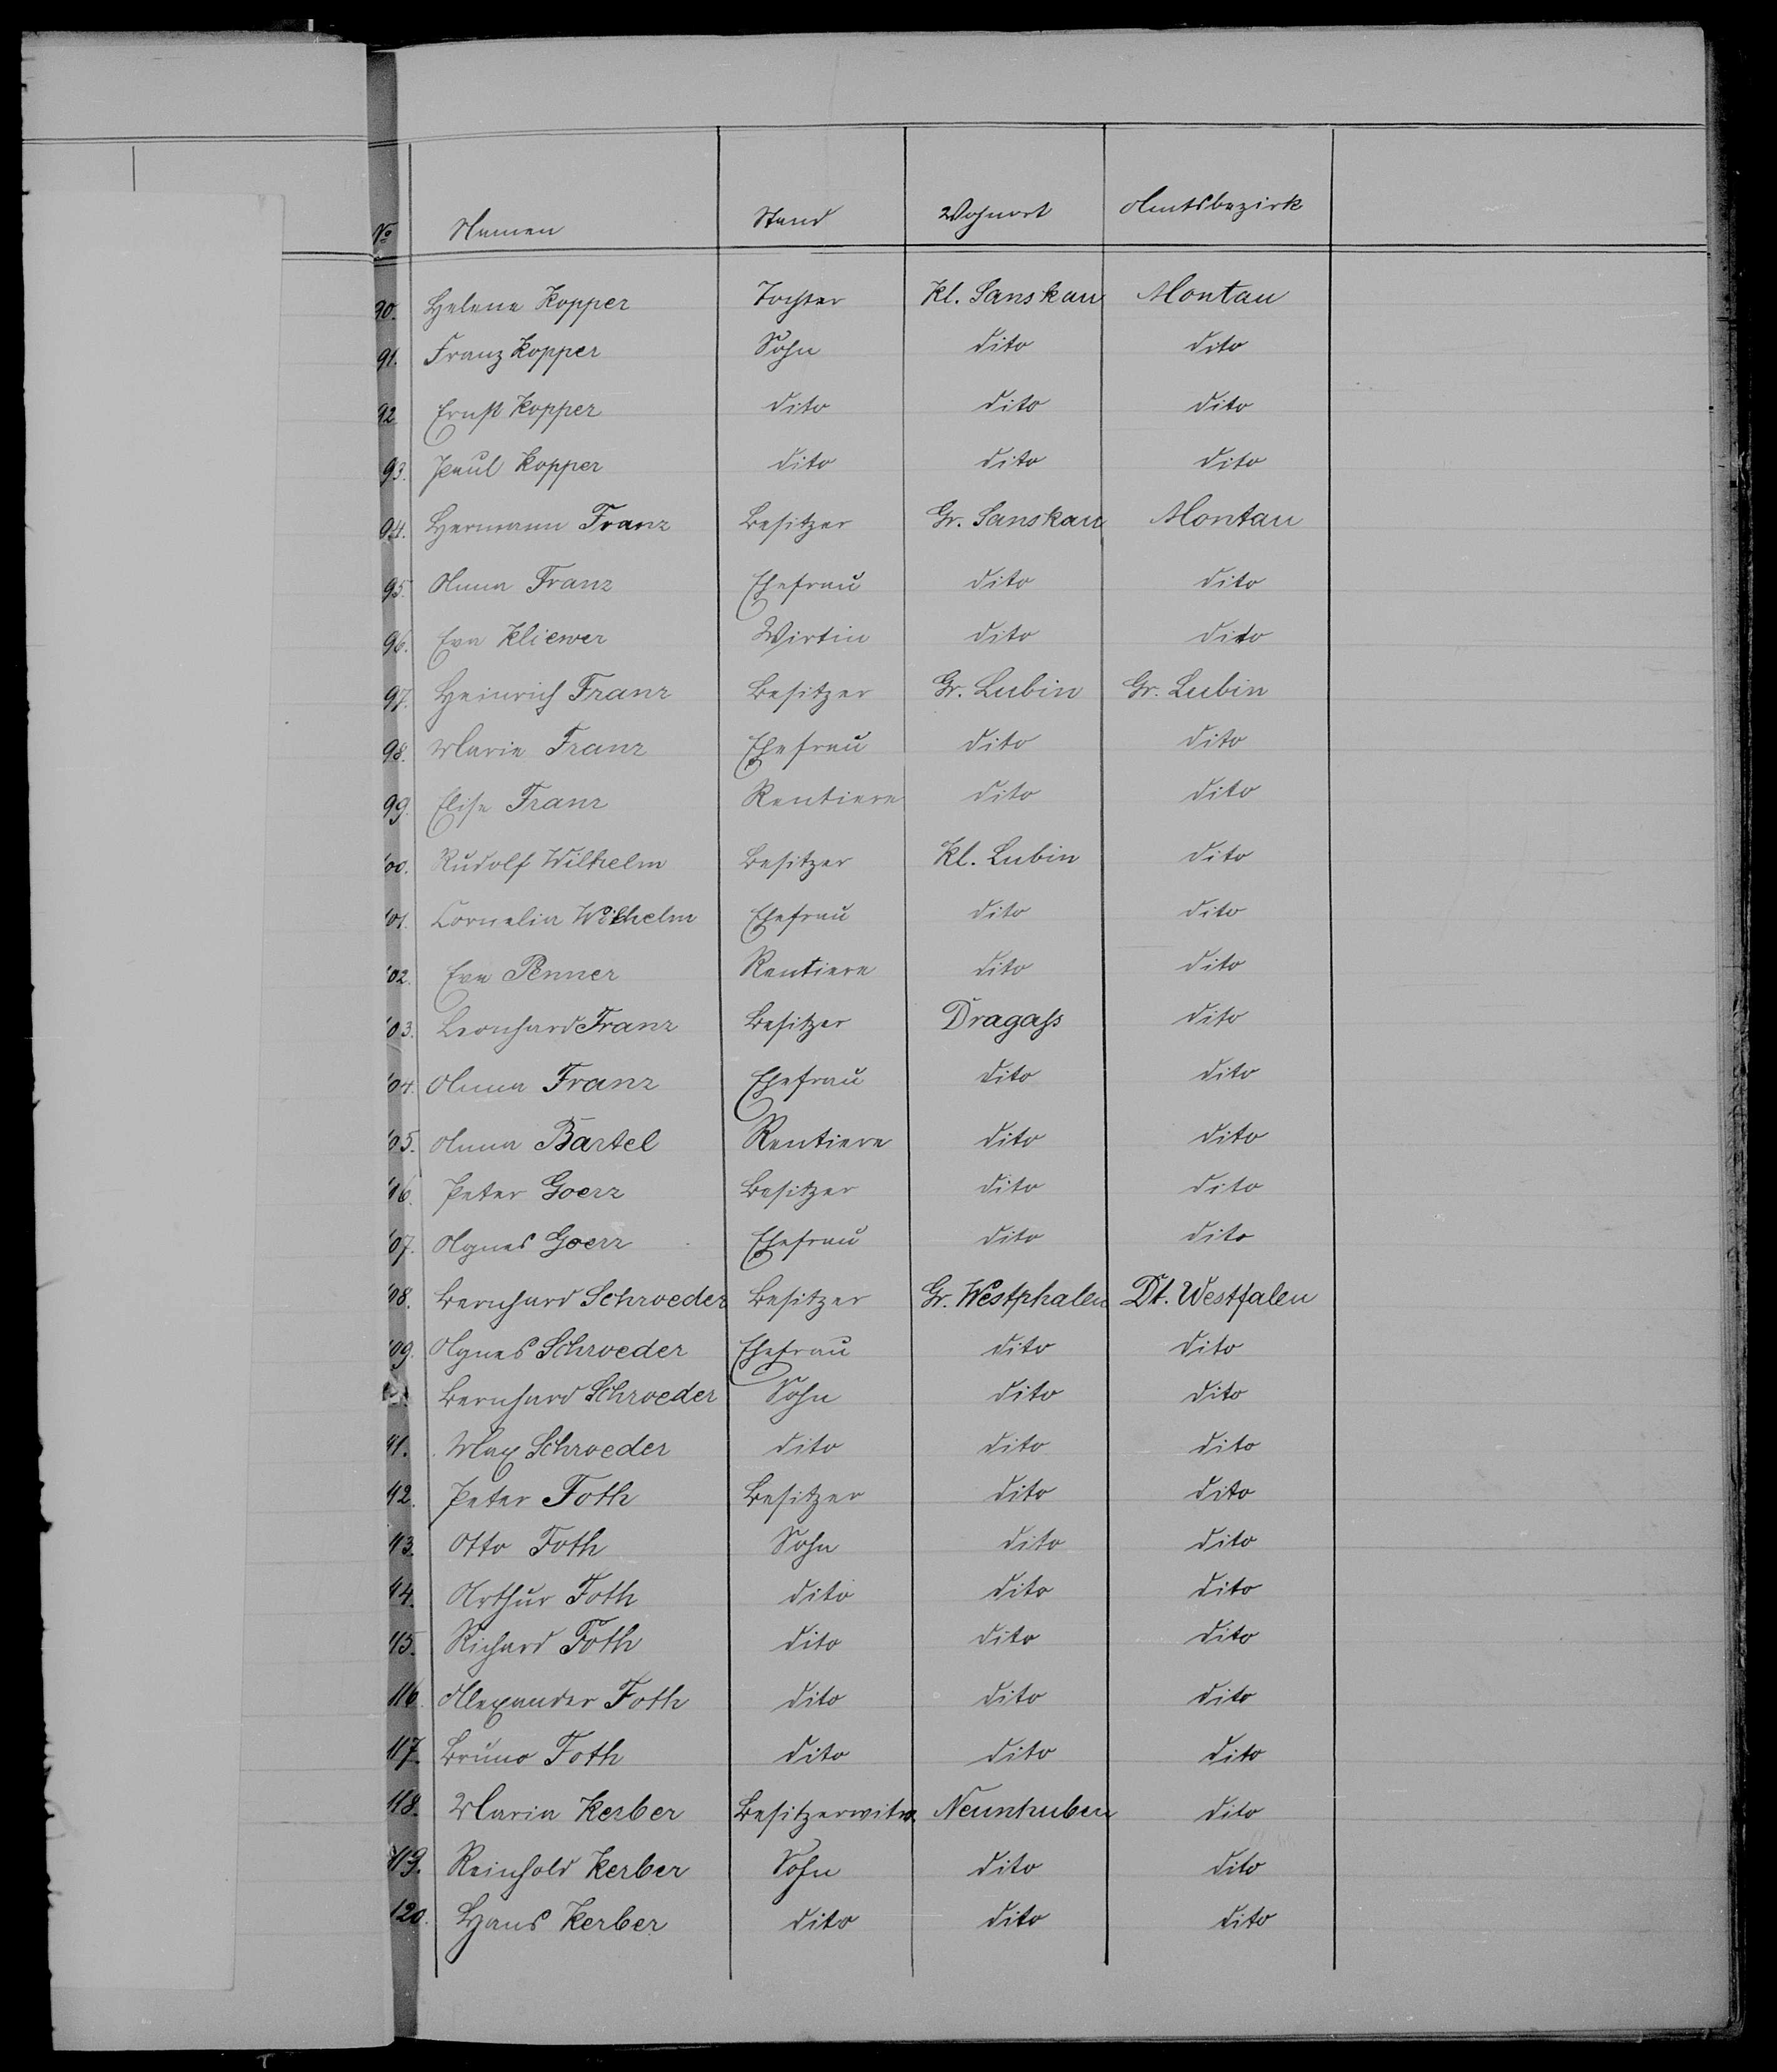 No Namen Stand Wohnort Amtsbezirk
90. Helene Kopper Tochter Kl. Sanskau Montau
91. Franz Kopper Sohn dito dito
92 Ernst Kopper dito dito dito
93. Paul Kopper dito dito dito
94. Hermann Franz Besitzer Gr. Sanskau Montau
95. Anna Franz Ehefrau dito dito
96. Eva Kliewer Wirtin dito dito
97. Heinrich Franz Besitzer Gr. Lubin Gr. Lubin
98. Marie Franz Ehefrau dito dito
99. Elise Franz Rentiere dito dito
100. Rudolf Wilhelm Besitzer Kl. Lubin dito
101. Cornelia Wilhelm Ehefrau dito dito
102. Eva Penner Rentiere dito dito
103. Leonhard Franz Besitzer Dragaß dito
104. Anna Franz Ehefrau dito dito
105. Anna Bartel Rentiere dito dito
106. Peter Goerz Besitzer dito dito
107. Agnes Goerz Ehefrau dito dito
108. Bernhard Schroeder Besitzer Gr. Westphalen Dt. Westfalen
109. Agnes Schroeder Ehefrau dito dito
Bernhard Schroeder Sohn dito dito
111. Max Schroeder dito dito dito
112. Peter Foth Besitzer dito dito
113. Otto Foth Sohn dito dito
114. Arthur Foth dito dito dito
115. Richard Foth dito dito dito
116. Alexander Foth dito dito dito
117. Bruno Foth dito dito dito
118. Maria Kerber Besitzerwitw. Neunhuben dito
119. Reinhold Kerber Sohn dito dito
120. Hans Kerber dito dito dito